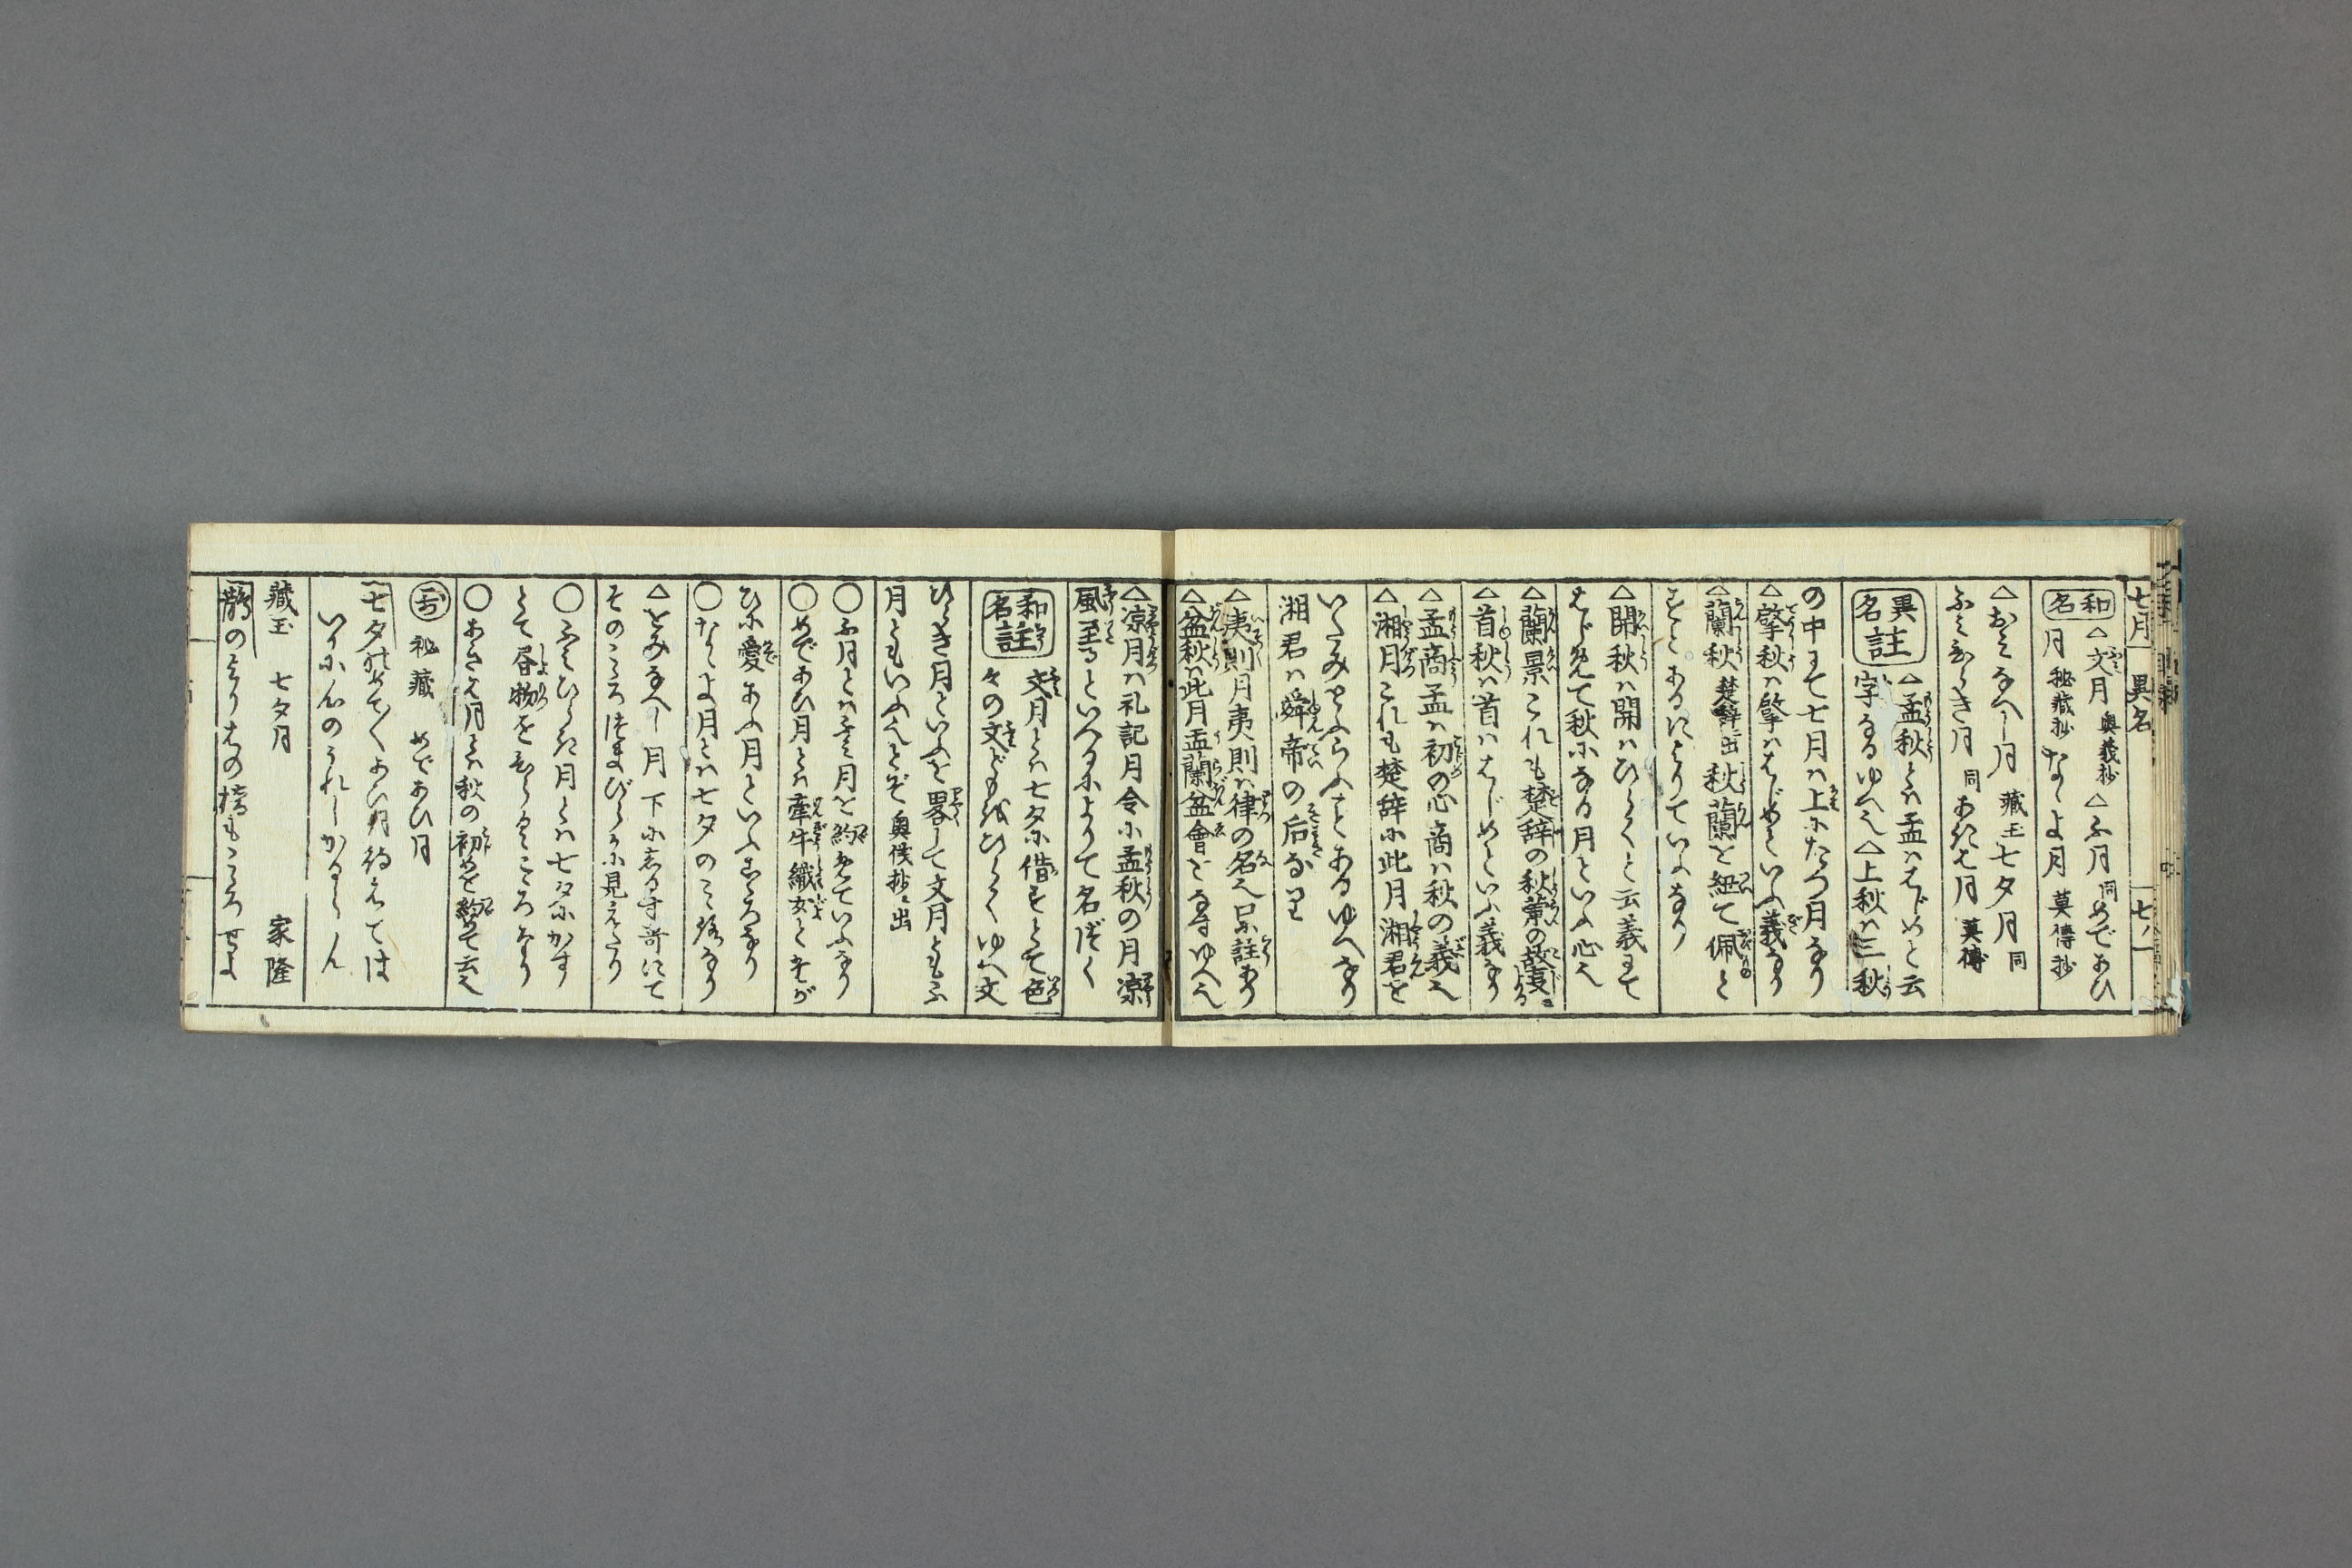 七月 異名 七ノ一
和名 △文月 奥義抄 △ふ月 同 めであひ
月 秘蔵抄 なゝよ月 莫傳抄
△おみなへし月 蔵玉 七夕月 同
ふみひらき月 同 あきは月 莫傳
異名註 △孟秋とハ孟ハはじめと云
字なるゆへ也 △上秋ハ三秋
の中にて七月ハ上にたつ月なり
△肇秋ハ肇ハはじめといふ義なり
△蘭秋 楚辞ニ出 秋蘭を紐て佩と
すとあるによりていふなり
△開秋ハ開ハひらくと云義にて
はじめて秋になる月といふ心也
△蘭景これも楚辞の秋蘭の故事による
△首秋ハ首ハはじめといふ義なり
△孟商孟ハ初の心商ハ秋の義也
△湘月これも楚辞に此月湘君を
いたみとふらふことあるゆへなり
湘君ハ舜帝の后なり
△夷則月夷則ハ律の名也 註あり
△盆秋ハ此月盂蘭盆會をなすゆへ也
△凉月ハ礼記月令に孟秋の月凉
風至るといへるによりて名づく
和名註 文月とハ七夕に借すとて色
々の文どもをひらくゆへ文
ひらき月といふを畧して文月ともふ
月ともいふへしとぞ 奥儀抄ニ出
○ふ月とハふみ月を約めていふなり
○めであひ月とハ牽牛織女とたが
ひに愛あふ月といふこゝろなり
○なゝよ月とハ七夕のこと絡なり
△をみなへし月 下に志るす哥にて
そのこゝろつまびらかに見えたり
○ふみひらき月とハ七夕にかす
とて書物をひらくこころなり
○あきは月とハ秋の初めを約めて云也
哥 秘蔵 めであひ月
七夕の あひ月待えては
いかに心のうれしかるらん
蔵玉 七夕月 家隆
鵲のよりはの橋もこゝろせよ